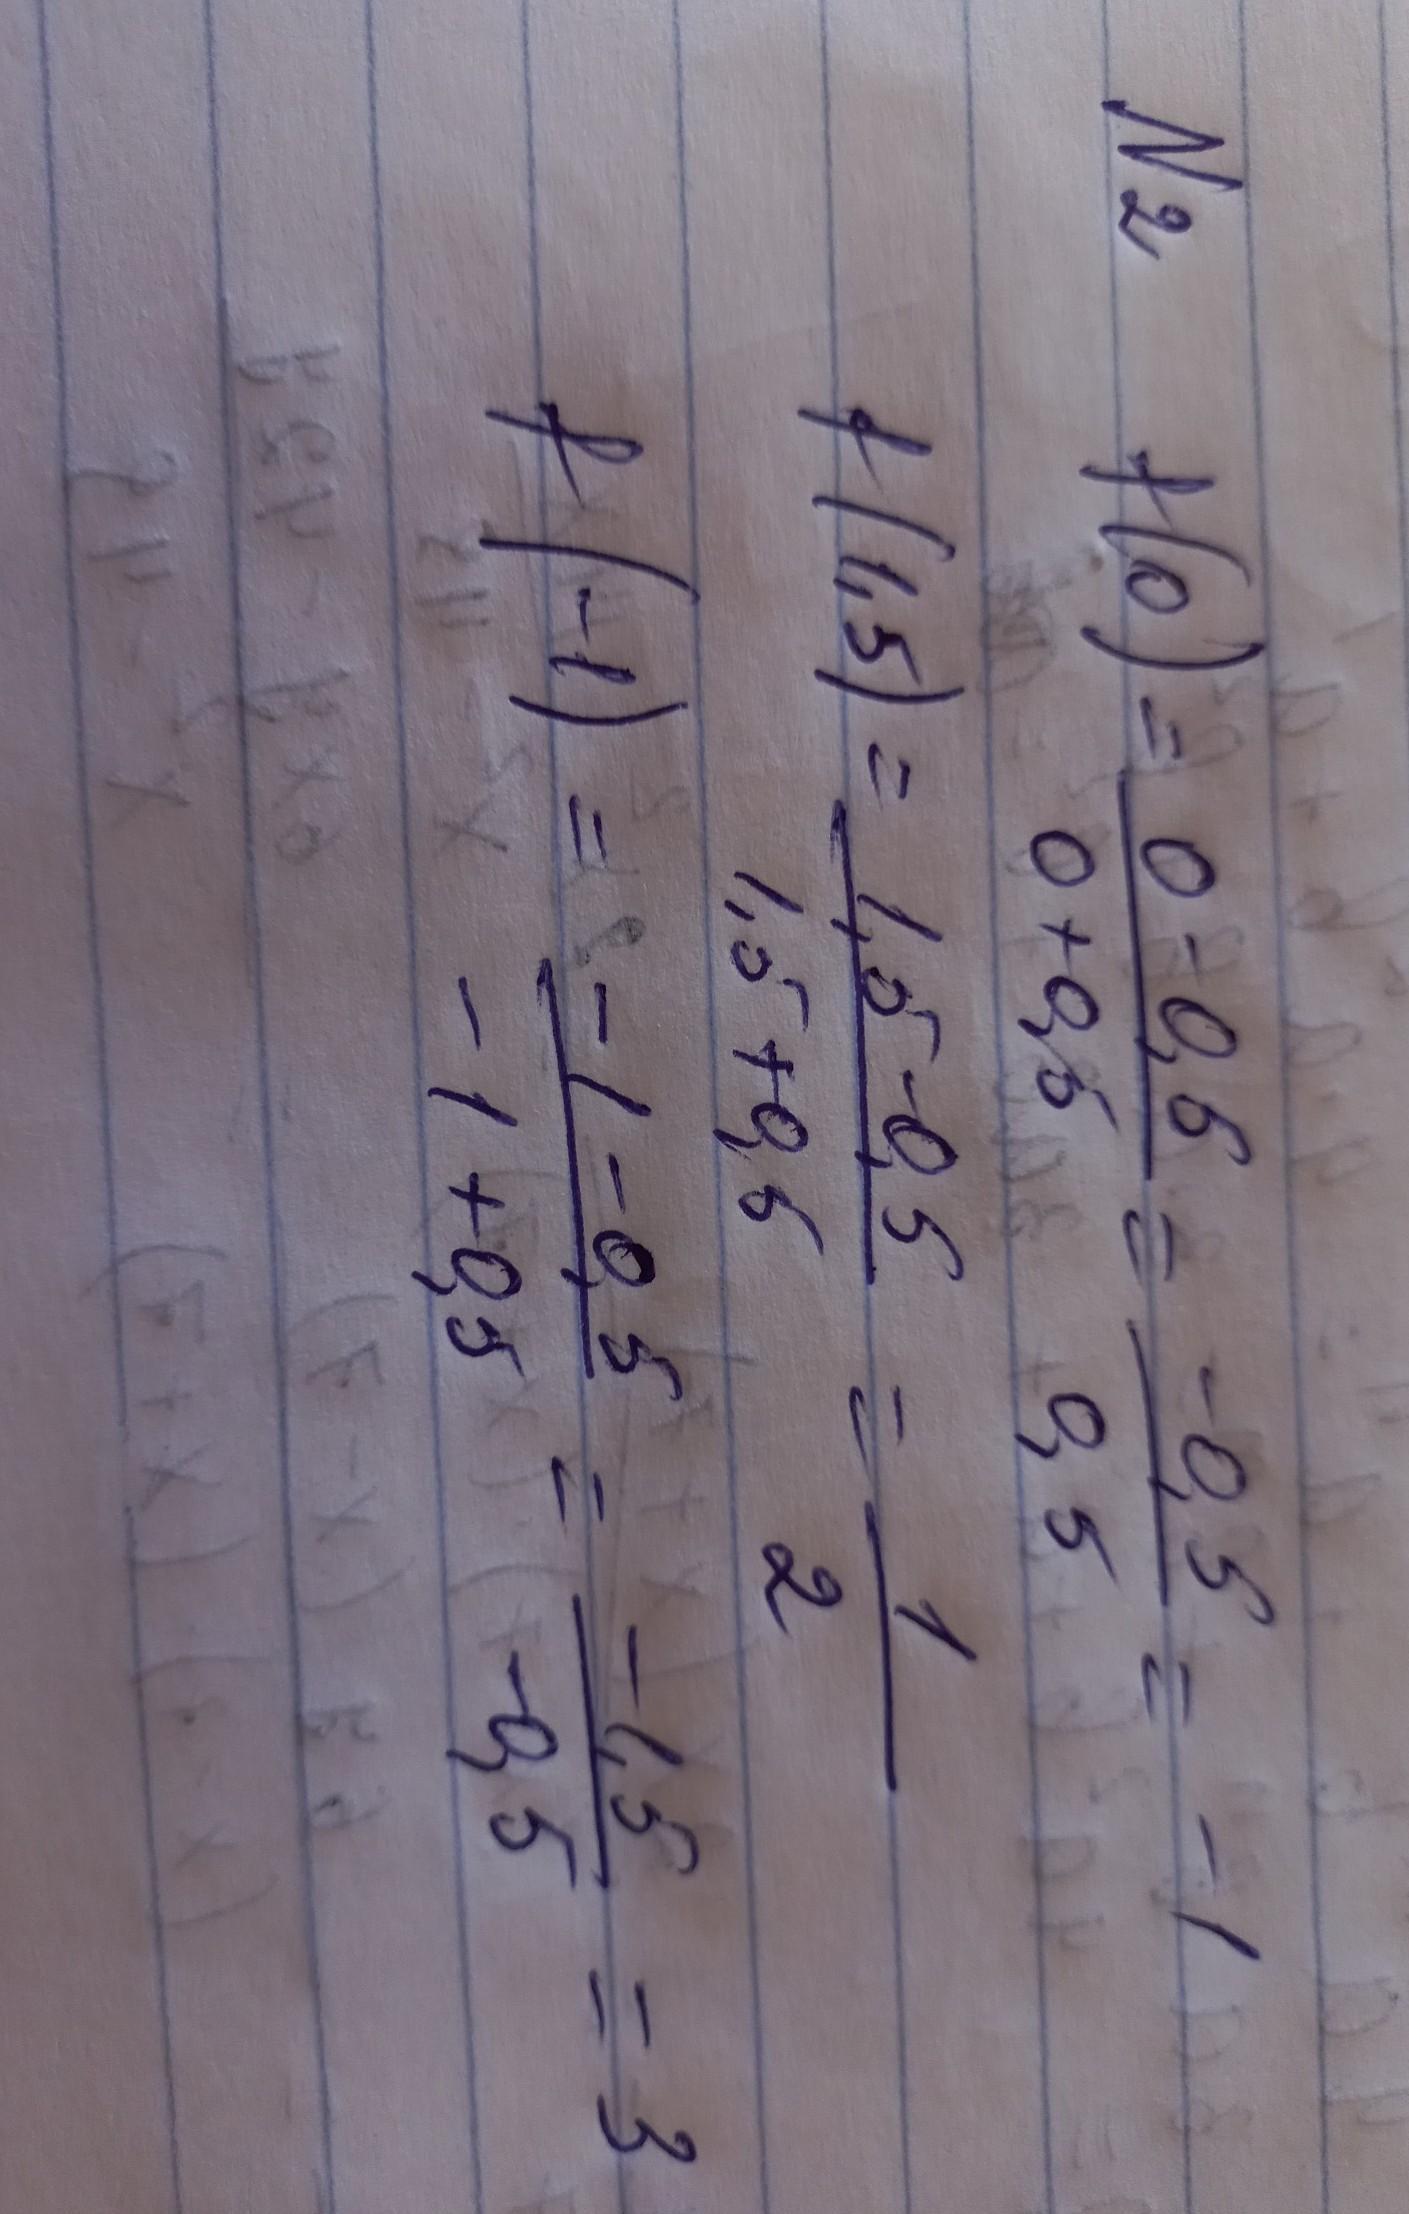 N2 f(0) = 0 - 0,5 / 0 + 0,5 = -0,5 / 0,5 = -1
f(1,5) = 1,5 - 0,5 / 1,5 + 0,5 = 1 / 2
f(-1) = -1 - 0,5 / -1 + 0,5 = -1,5 / -0,5 = 3